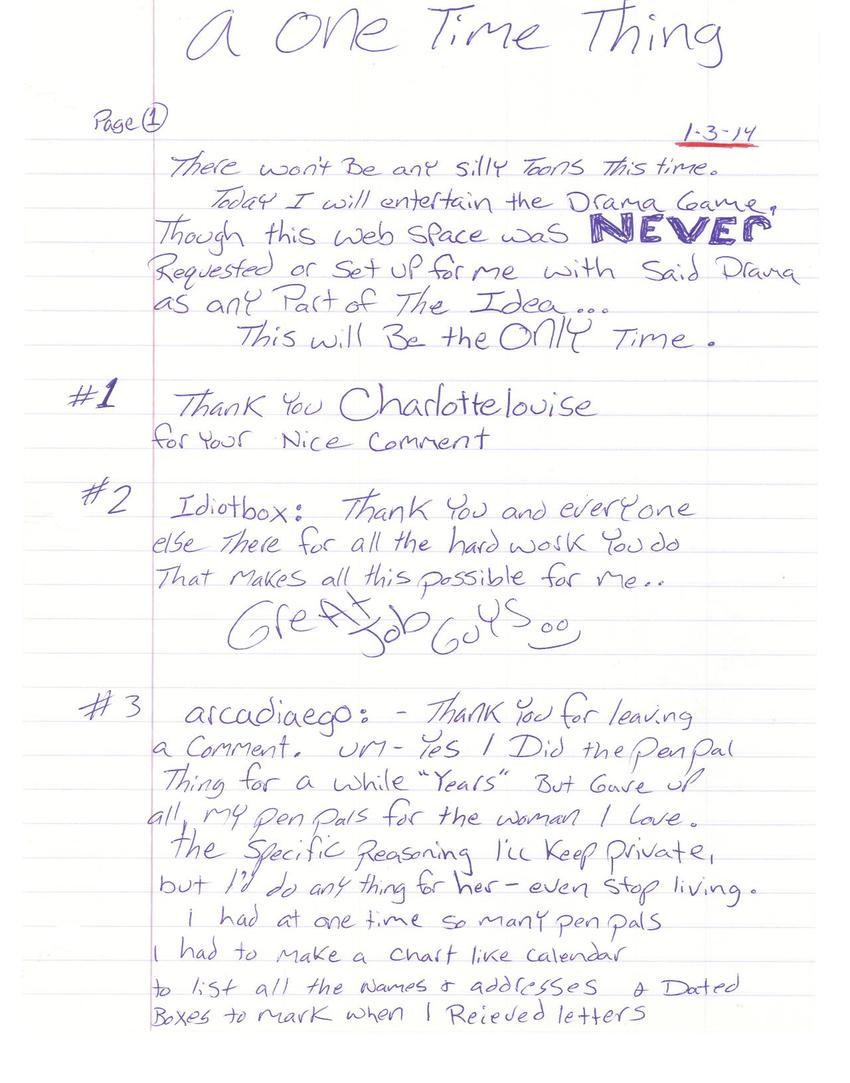 a One Time Thing
Page 1
1-3-14
There won't Be any silly Toons This time.
Today I will entertain the Drama Game,
Though this web space was NEVER
Requested or set up for me with Said Drama
as any Part of The Idea...
This will Be the ONLY Time.
#1 Thank You Charlottelouise
for Your Nice Comment
#2 Idiotbox: Thank You and everyone
else There for all the hard work You do
That makes all this possible for me..
Great Job Guys
#3 arcadiaego: - Thank You for leaving
a Comment. um - Yes I Did the pen pal
Thing for a while "Years" But Gave up
all, my pen pals for the woman I love.
the Specific Reasoning I'll Keep private,
but I'd do any thing for her - even stop living.
i had at one time so many pen pals
I had to make a chart like calendar
to list all the Names & addresses & Dated
Boxes to mark when I Reieved letters